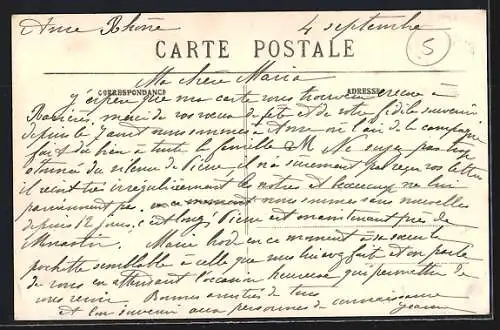 Anse Rhône 4 septembre 5
CARTE POSTALE
CORRESPONDANCE ADRESSE
Ma chère Maria
j'espère que ma carte vous trouvera encore à
merci de vos vœux de fête et de votre fidèle souvenir
depuis le nous sommes à Anse où l'air de la campagne
fait du bien à toute la famille Ne soyez pas trop
étonnée du silence de Pierre il n'a sûrement pas reçu vos lettres
il reçoit très irrégulièrement les nôtres et beaucoup ne lui
parviennent pas. en ce moment nous sommes sans nouvelles
depuis 12 jours, c'est long, Pierre est maintenant près de
Marie brode en ce moment à sa
pochette semblable à celle que me fait et on parle
de vous en attendant l'occasion heureuse qui permettra de
vous revoir. Bonnes amitiés de tous
et bon souvenir aux personnes de connaissance
Jeanne